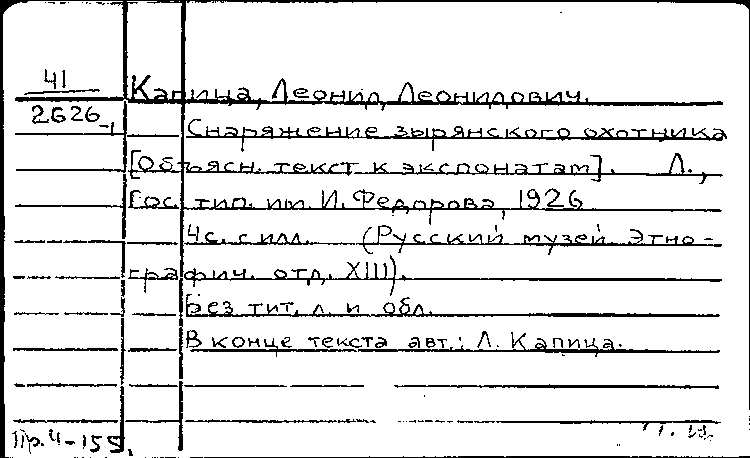 41
2626-1
Капица, Леонид Леонидович.
Снаряжение зырянского охотника
[Объясн. текст к экспонатам]. Л.,
Гос. тип. им. И. Федорова, 1926
4с. с илл. (Русский музей. Этно-
графич. отд. XIII).
Без тит. л. и обл.
В конце текста авт.: Л. Капица.
Пр. 4-155,